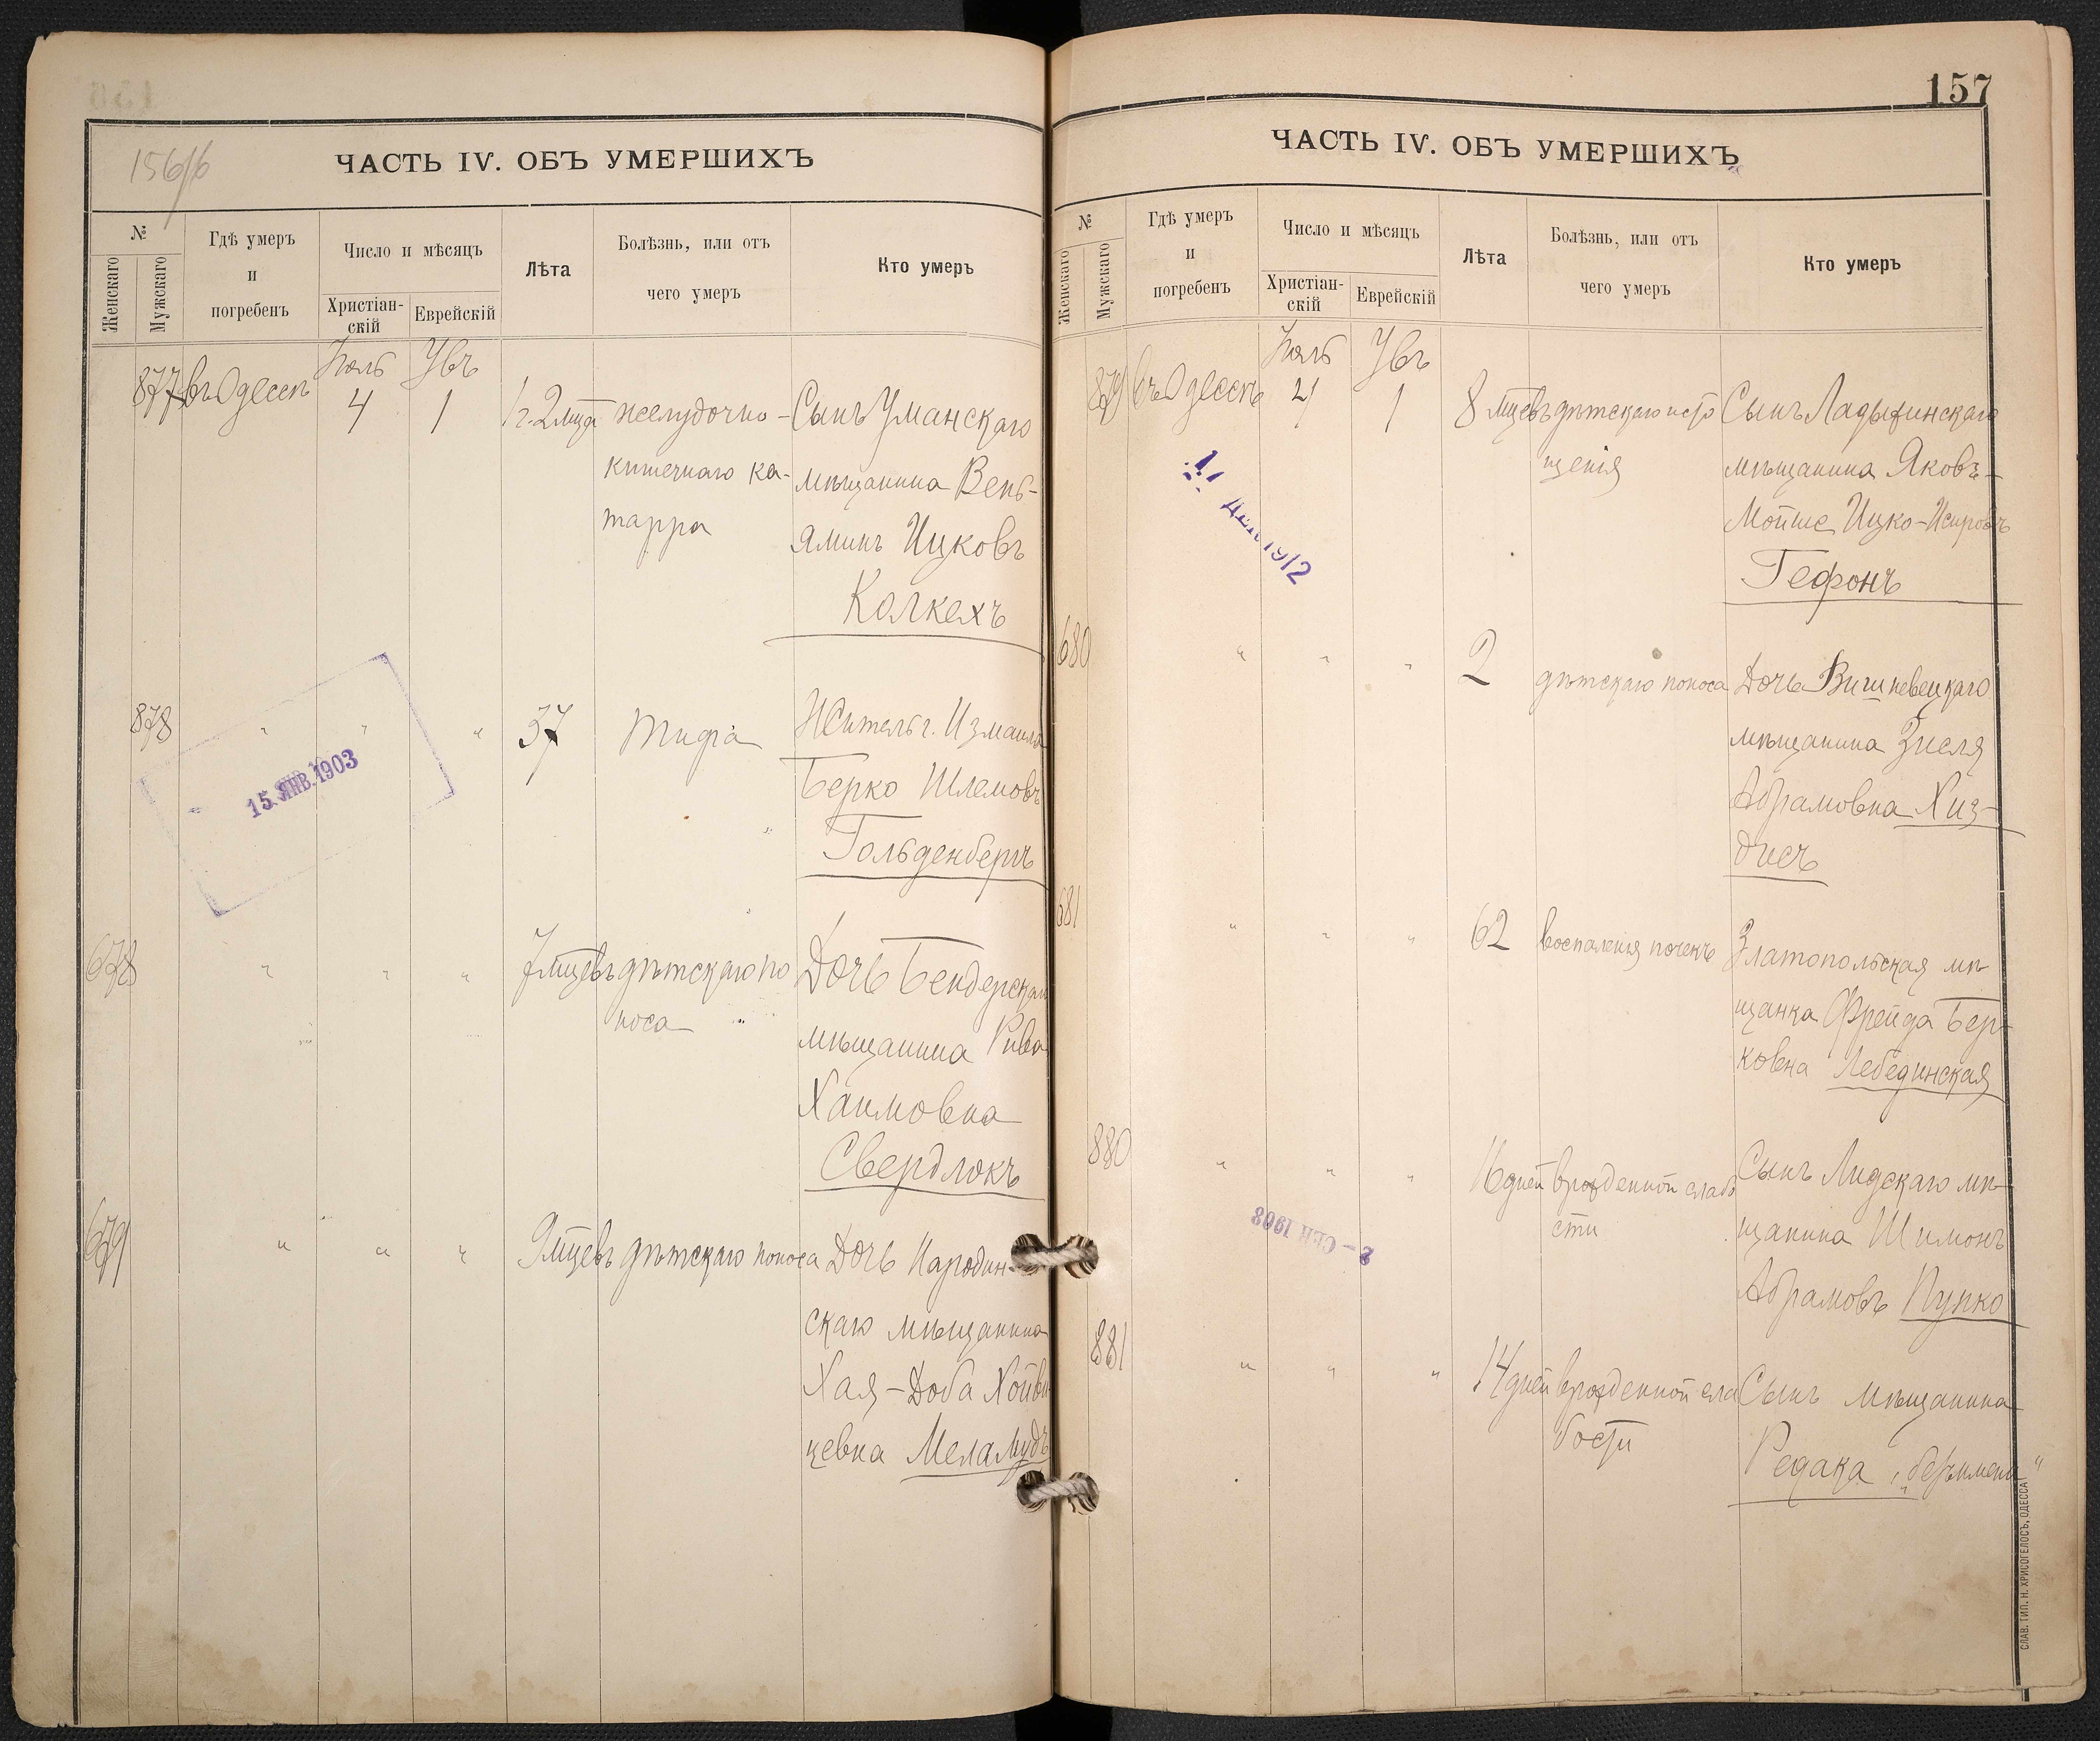 156/б
ЧАСТЬ IV. ОБЪ УМЕРШИХЪ
№
Женскаго
Мужскаго
Гдѣ умеръ
и
погребенъ
Число и мѣсяцъ
Христіан-
скій
Еврейскій
Лѣта
Болѣзнь, или отъ
чего умеръ
Кто умеръ
877 въ Одессѣ 4 1 желудочно- Сынъ Уманскаго
кишечнаго ка- мѣщанина Вень-
тарра яминъ Ицковъ
Колкехъ
878 " " " 37 тифа Житель г. Измаила
Берко Шлемовъ
Гольденбергъ
15. ЯНВ. 1903
678 " " " 7 мцевъ дѣтскаго по Дочь Бендерскаго
носа мѣщанина Рива
Хаимовна
Свердликъ
679 " " " 9 мцевъ дѣтскаго поноса Дочь Народин-
скаго мѣщанина
Хая-Доба
цевна Меламудъ
157
ЧАСТЬ IV. ОБЪ УМЕРШИХЪ
№
Женскаго
Мужскаго
Гдѣ умеръ
и
погребенъ
Число и мѣсяцъ
Христіан-
скій
Еврейскій
Лѣта
Болѣзнь, или отъ
чего умеръ
Кто умеръ
879 въ Одессѣ 4 1 8 мцевъ дѣтскаго исто Сынъ Ладыжинскаго
щенія мѣщанина Яковъ-
Мойше Ицко-Исировъ
Гефонъ
1912
680 " " " 2 дѣтскаго поноса Дочь Вишневецкаго
мѣщанина Зиселя
Абрамовна Хиз-
дисъ
681 " " " 62 воспаленія почекъ Златопольская мѣ
щанка Фрейда Бер-
ковна Лебединская
880 " " " 16 дней врожденной слабо Сынъ Лидскаго мѣ-
сти щанина Шимонъ
Абрамовъ Пупко
2 – СЕН 1908
881 " " " 14 дней врожденной сла Сынъ мѣщанина
бости Редака „безъимени"
СЛАВ. ТИП. Н. ХРИСОГЕЛОСЪ, ОДЕССА